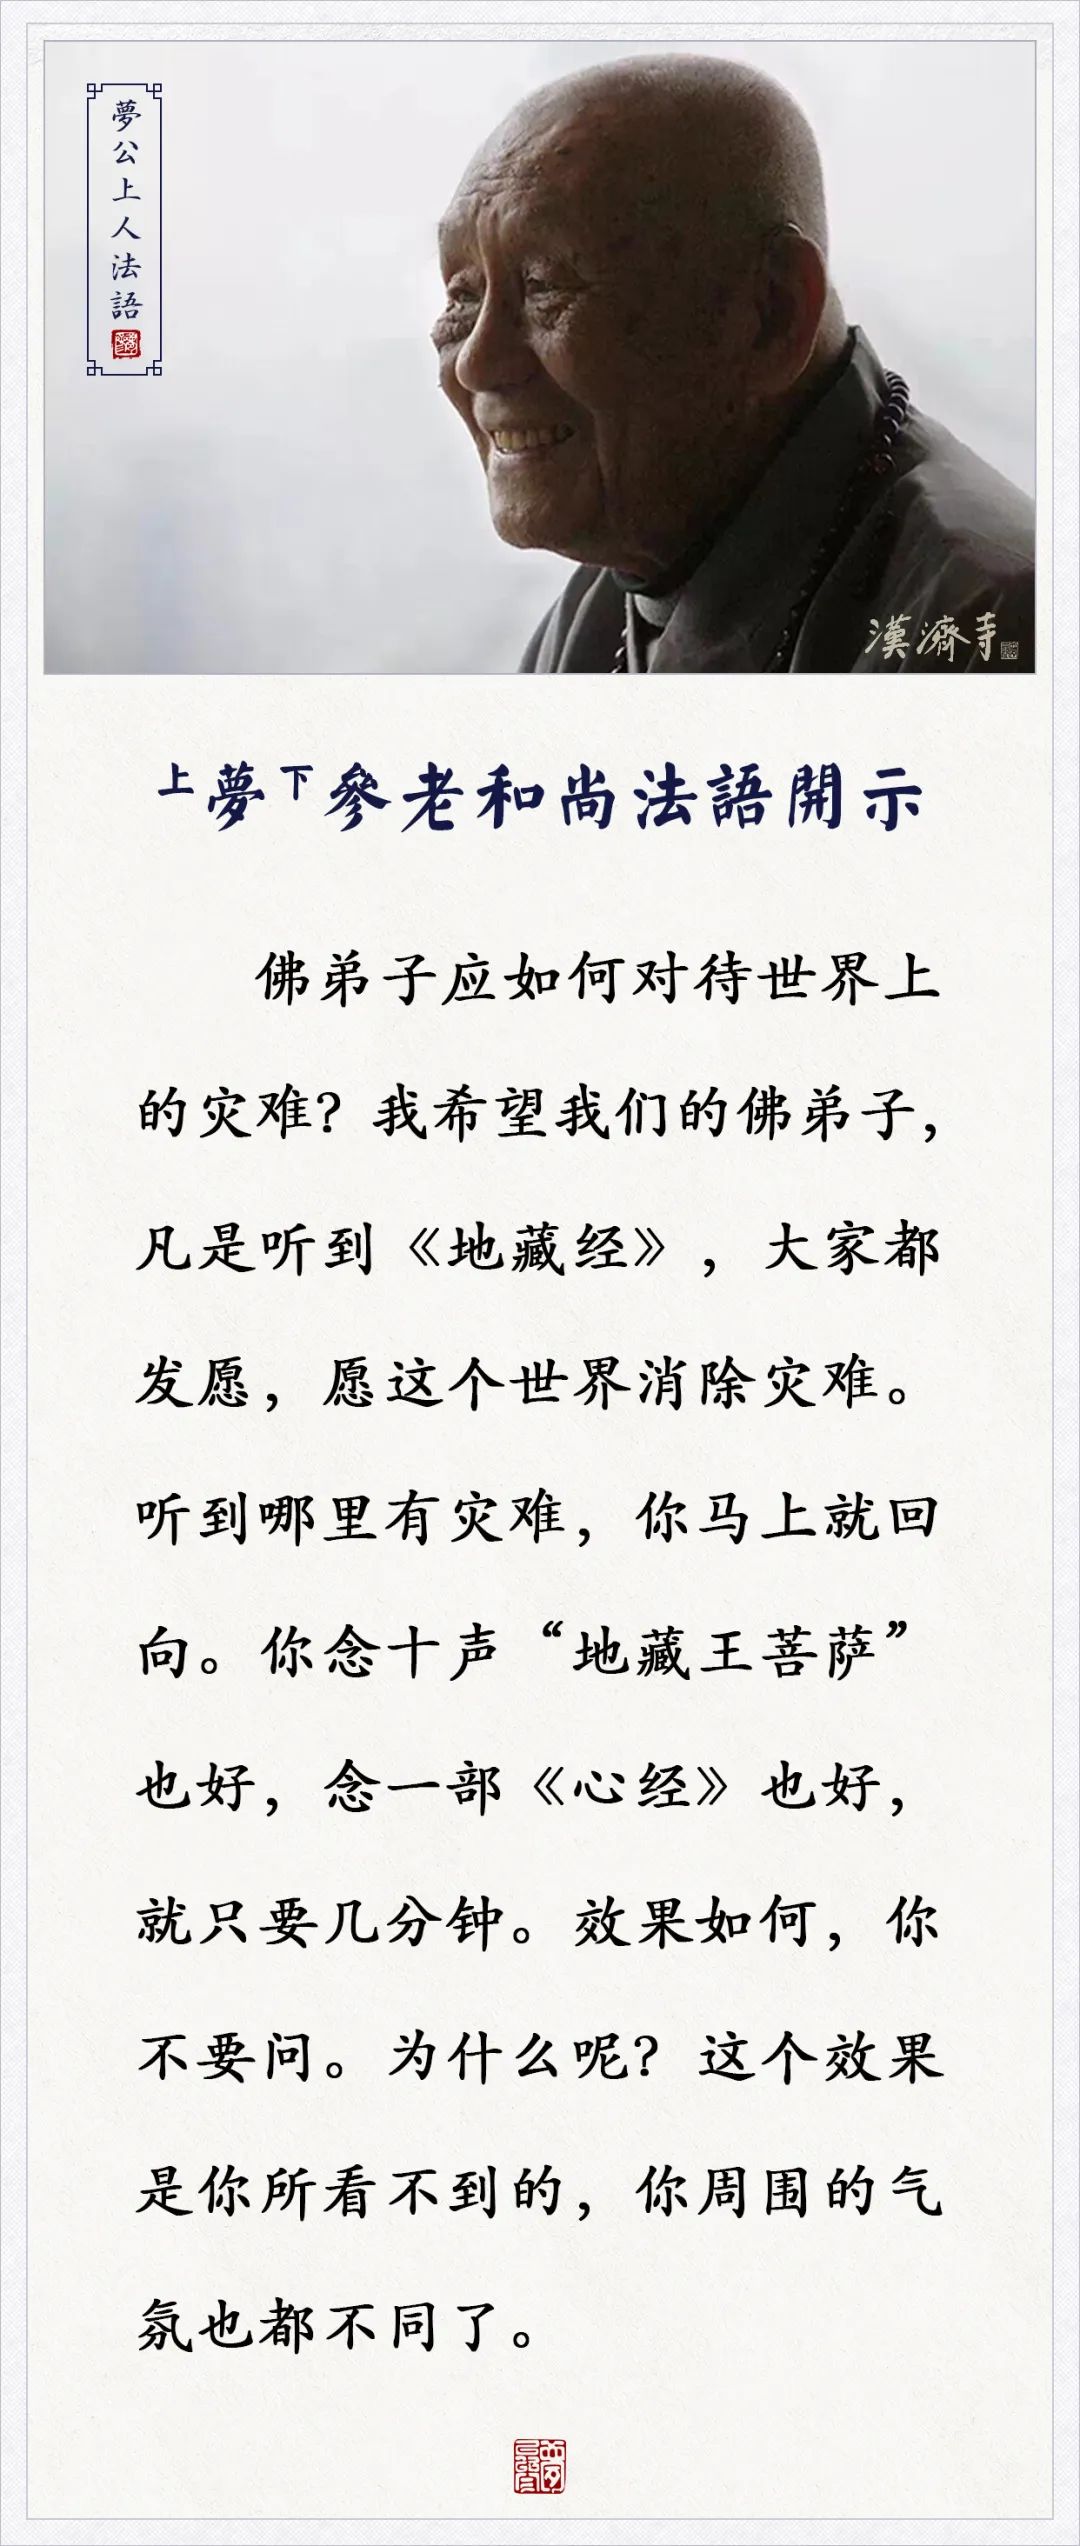 夢公上人法語
漢濟寺
上夢下參老和尚法語開示
佛弟子应如何对待世界上
的灾难？我希望我们的佛弟子，
凡是听到《地藏经》，大家都
发愿，愿这个世界消除灾难。
听到哪里有灾难，你马上就回
向。你念十声“地藏王菩萨”
也好，念一部《心经》也好，
就只要几分钟。效果如何，你
不要问。为什么呢？这个效果
是你所看不到的，你周围的气
氛也都不同了。